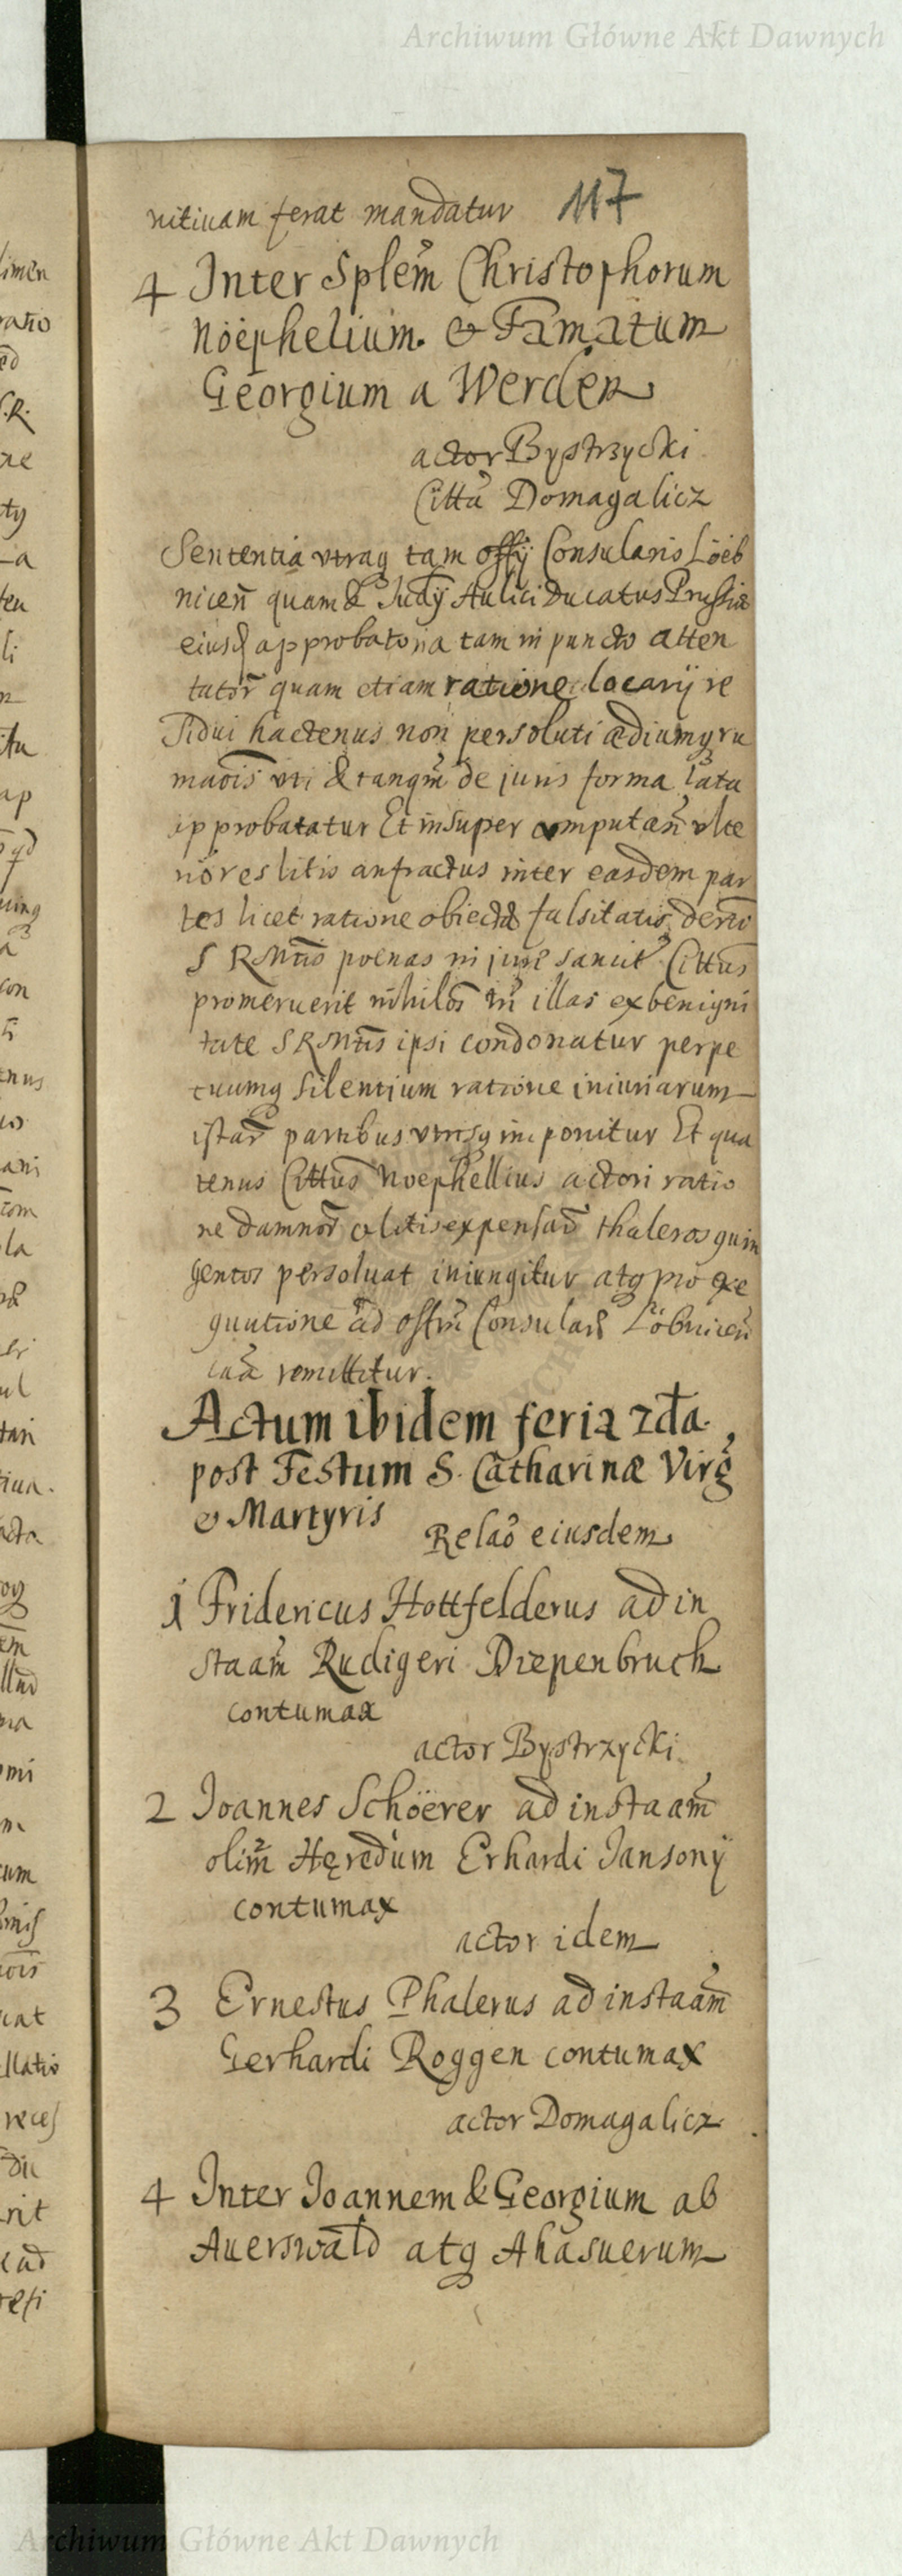 Archiwum Główne Akt Dawnych
nitiuam ferat mandatur 117
4 Inter Splem̃ Christophorum
Nöephelium. & Famatum
Georgium a Werden
actor Bystrzycki
Citt9 Domagalicz
Sententia vtraq tam offÿ Consularis Löeb
nicen̄ quam & Judÿ Aulici Ducatus Prussiæ
eiusq approbatoria tam in puncto atten
tator̄ quam etiam ratione locarÿ re
sidui hactenus non persoluti ædiumq ru
maōis vti & tanqm̃ de juris forma lata
approbatatur Et insuper computan̄ vlte
riores litis anfractus inter easdem par
tes licet ratione obiectæ falsitatis
S RMtis poenas in jure sancit9 Cittus
promeruerit nihilos tn̄ illas ex benigni
tate SRMtis ipsi condonatur perpe
tuumq silentium ratione iniuriarum
istar̄ partibus vtrisq imponitur Et qua
tenus Cittus Noephellius actori ratio
ne damnor̄ & litis expensar̄ thaleros quin
gentos persoluat iniungitur atq pro exe
quutione ad offm̄ Consulare Löbnicen̄
remittitur.
Actum ibidem feria 2da.
post Festum S. Catharinæ Virg
& Martyris
Relaō eiusdem
1 Fridericus Hottfelderus ad in
staam̃ Rudigeri Diepenbruch
contumax
actor Bystrzycki
2 Joannes Schöerer ad instaam̃
olim̃ Hęredum Erhardi Jansonÿ
contumax
actor idem
3 Ernestus Phalerus ad instaam̃
Gerhardi Roggen contumax
actor Domagalicz
4 Inter Joannem & Georgium ab
Auerswald atq Ahasuerum
Archiwum Główne Akt Dawnych